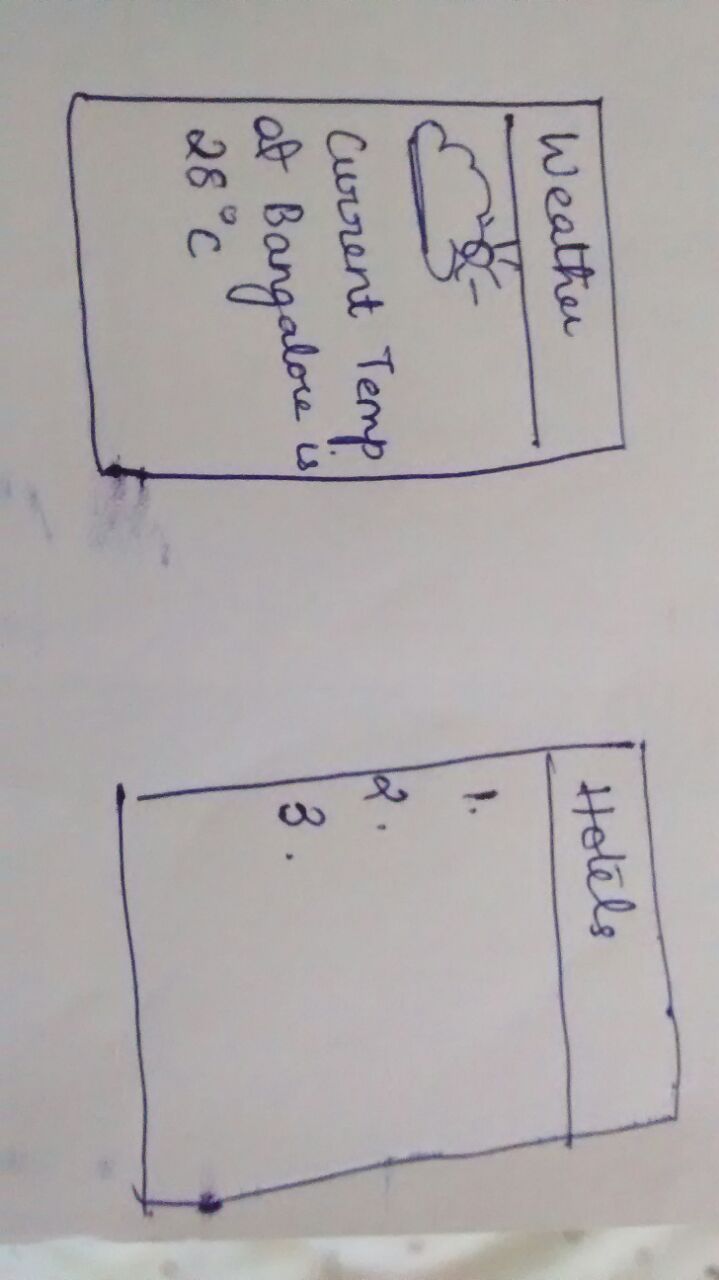 Weather
Current Temp
at Bangalore is
28°C
Hotels
1.
2.
3.